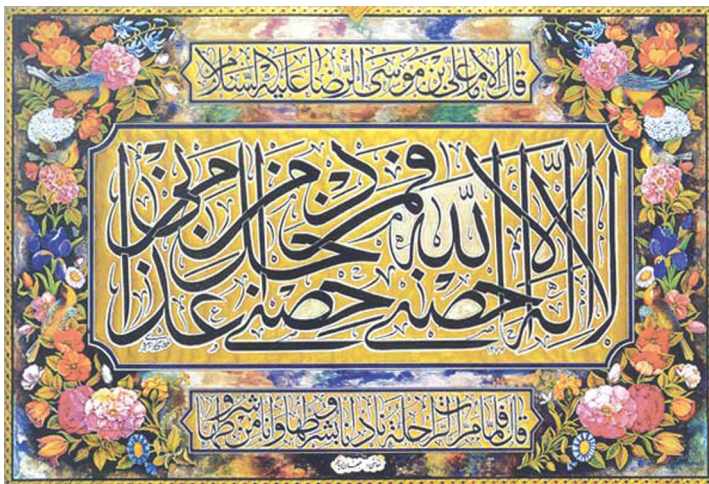 قال الامام علی بن موسی الرضا علیه السلام
لا اله الا الله حصنی فمن دخل حصنی امن من عذابی
قال فلما مرت الراحلة نادانا بشروطها وانا من شروطها